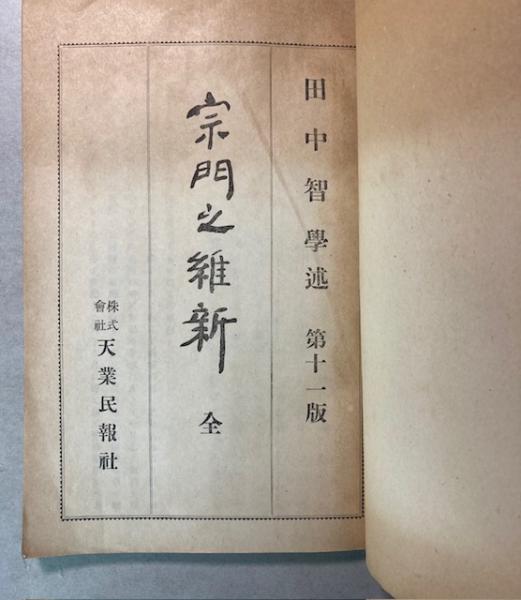 田中智學述 第十一版
宗門之維新 全
株式會社 天業民報社